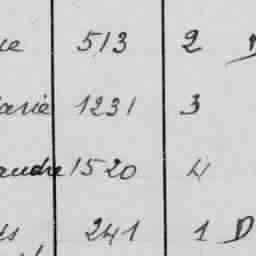 ue 513 2
arie 1231 3
andre 1520 4
241 1 D